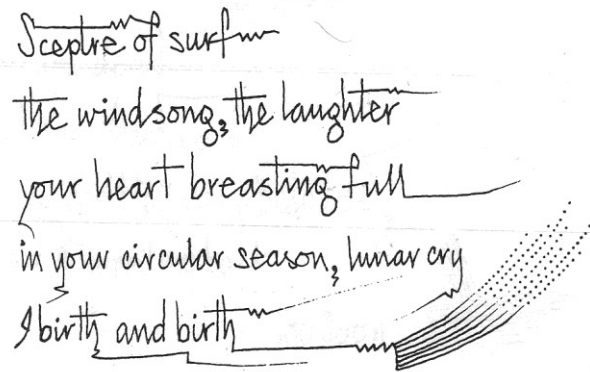 Sceptre of surf
the windsong, the laughter
your heart breasting full
in your circular season, lunar cry
I birth and birth